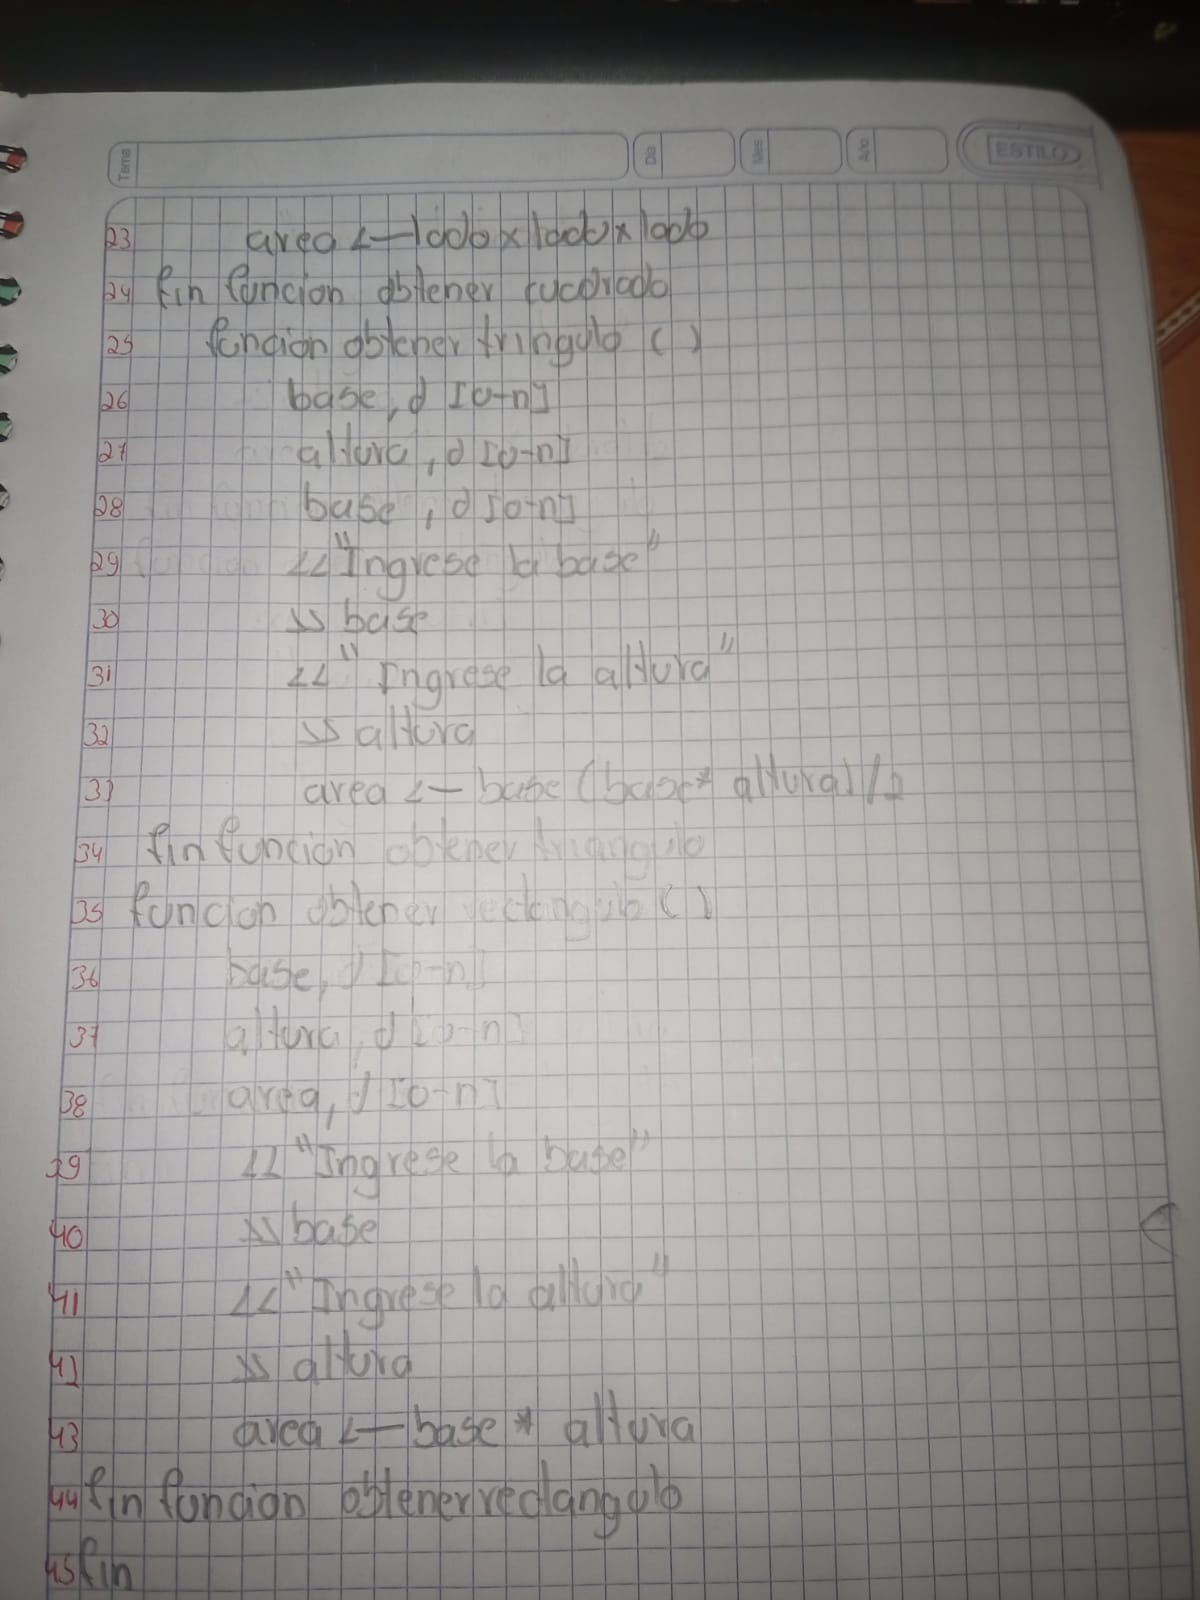 Tema Dia Mes Año ESTILO
23 area <— lado x lado x lado
24 fin funcion obtener cuadrado
25 funcion obtener tringulo ( )
26 base, d [0-n]
27 altura, d [0-n]
28 base, d [0-n]
29 << "Ingrese la base"
30 >> base
31 << "Ingrese la altura"
32 >> altura
33 area <— base (base * altura) /2
34 fin funcion obtener triangulo
35 funcion obtener rectangulo ( )
36 base, d [0-n]
37 altura, d [0-n]
38 area, d [0-n]
39 << "Ingrese la base"
40 >> base
41 << "Ingrese la altura"
42 >> altura
43 area <— base * altura
44 fin funcion obtener rectangulo
45 fin